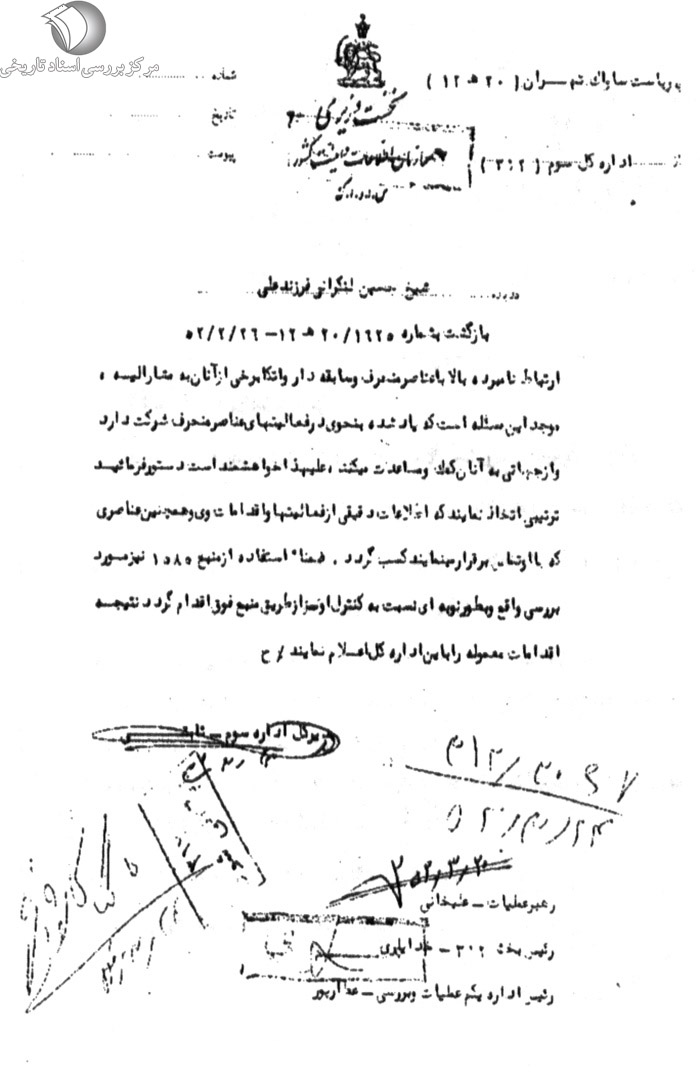 مرکز بررسی اسناد تاریخی
به ریاست ساواك تهران ( ۲۰ هـ ۱۲ )
از اداره کل سوم ( ۳۰۲ )
نخست وزیری
سازمان اطلاعات و امنیت کشور
س.ا.و.ا.ك
شماره
تاریخ
پیوست
درباره شیخ حسین لنکرانی فرزند علی
بازگشت بشماره ۲۰/۱۶۲۵ هـ ۱۲ – ۵۲/۲/۲۶
ارتباط نامبرده بالا با عناصر منحرف و سابقه دار و اتکا برخی از آنان به مشارالیه ،
موجد این مسئله است که یاد شده بنحوی در فعالیتهای عناصر منحرف شرکت دارد
و از جهاتی به آنان کمك و مساعدت میکند ، علیهذا خواهشمند است دستور فرمائید
ترتیبی اتخاذ نمایند که اطلاعات دقیقی از فعالیتها و اقدامات وی و همچنین عناصری
که با او تماس برقرار مینمایند کسب گردد . ضمنا" استفاده از منبع ۱۵۸۵ نیز مورد
بررسی واقع و بطور نوبه ای نسبت به کنترل او نیز از طریق منبع فوق اقدام گردد نتیجه
اقدامات معموله را باین اداره کل اعلام نمایند / ح
مدیر کل اداره سوم – ثابتی
۳۱۲/۳۰۶۷
۵۲/۳/۲۳
۵۲/۳/۲۰
رهبر عملیات – علیخانی
رئیس بخش ۳۰۲
رئیس اداره یکم عملیات و بررسی – عطارپور